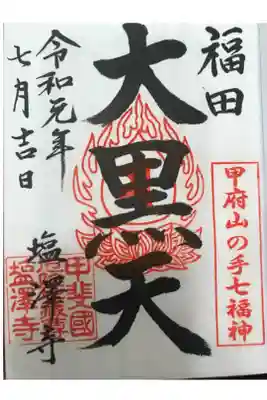 福田
甲府山の手七福神
大黒天
塩澤寺
甲斐國
塩澤寺
令和元年
七月吉日